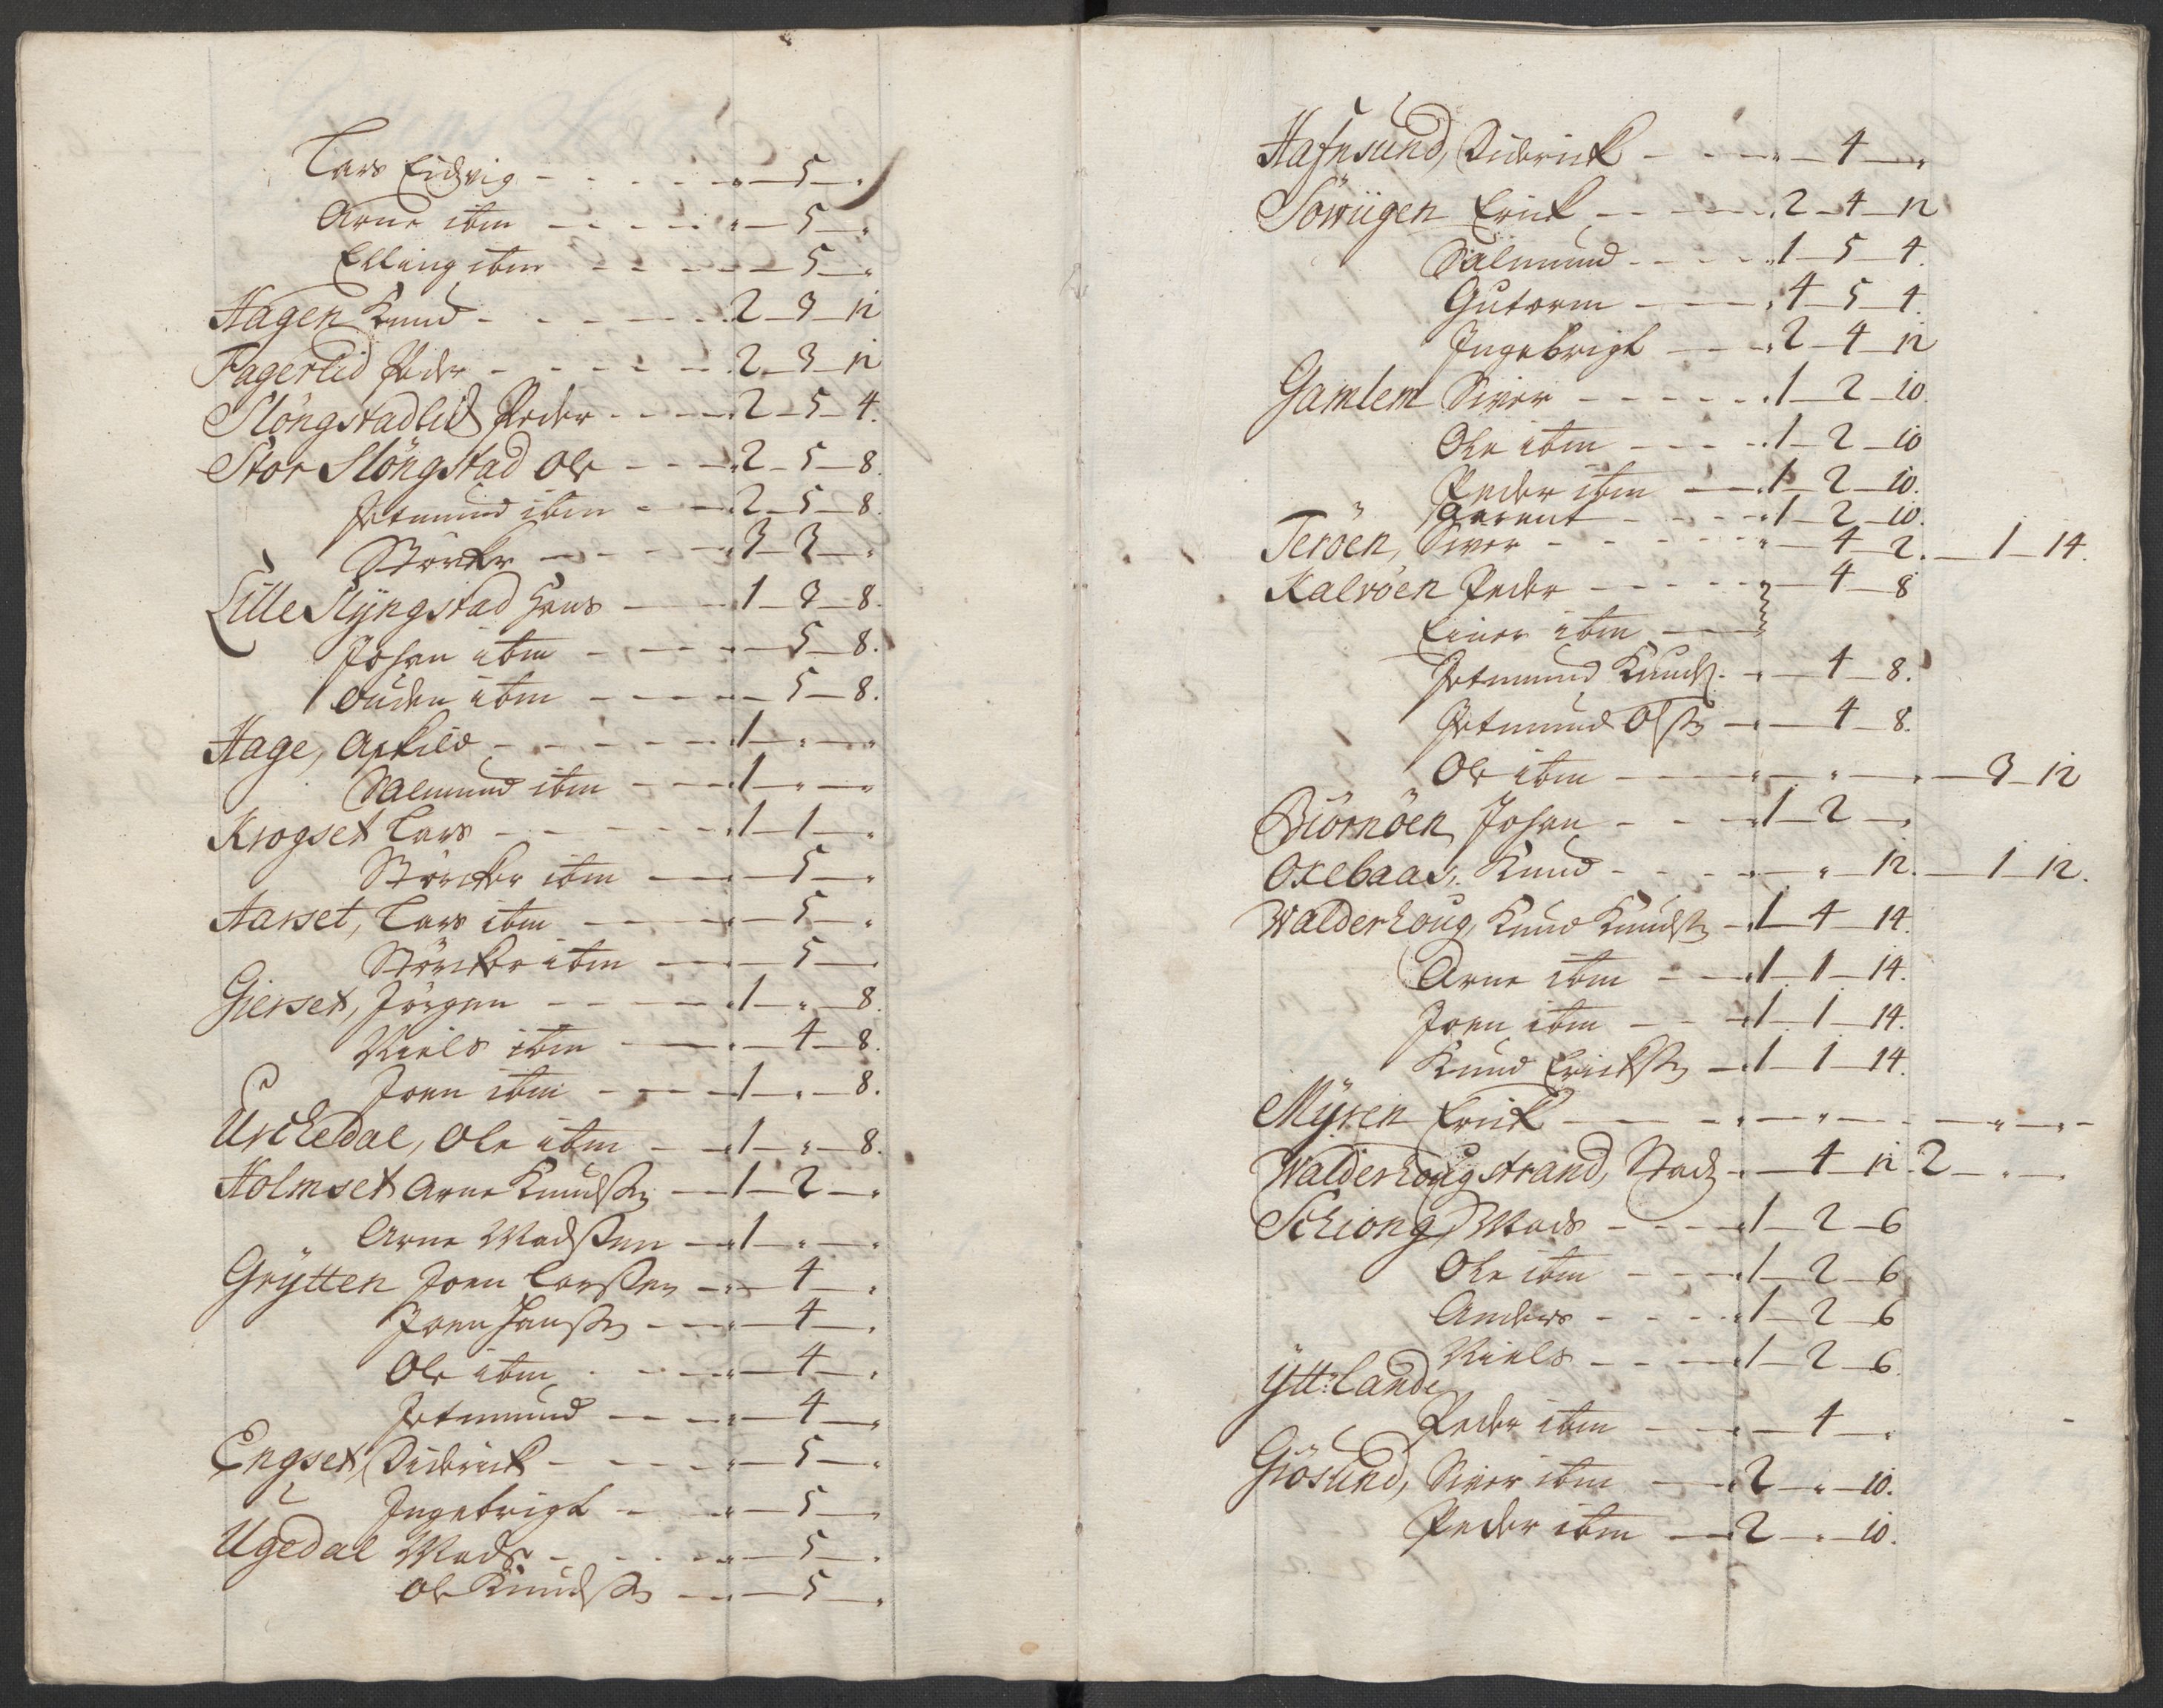 Lars Eidsvig - - - - - „ - 5 - „
Arne ibm - - - - „ - 5 - „
Elling ibm - - - - - 5 - „
Hagen Knud - - - - - 2 - 3 - 12
Fagerlid Peder - - - - - 2 - 3 - 12
Slöngstadlid Peder - - - 2 - 5 - 4.
Stor Slöngstad Ole - - - 2 - 5 - 8.
Jetmund ibm - - 2 - 5 - 8.
Störcker - - - - 3 - 3 - „
Lille Slÿngstad Hans - - 1 - 3 - 8.
Johan ibm - - - - - 5 - 8.
Ouden ibm - - - - - 5 - 8.
Hage, Aschild - - - - - 1 - „ - „
Salmund ibm - - - 1 - „ - „
Krogset Lars - - - - - 1 - 1 - „
Störcker ibm - - - 5 - „
Aarset, Lars ibm - - - - 5 - „
Störcker ibm - - - 5 -
Gierset, Jörgen - - - - 1 - „ - 8.
Niels ibm - - - „ - 4 - 8.
Joen ibm - - - - 1 - „ - 8.
Urckedal, Ole ibm - - 1 - „ - 8.
Holmset Arne Knudsen - 1 - 2 - „
Arne Madsen - 1 - „ - „
Grÿtten Joen Larsen - „ - 4 - „
Joen Hansen - - - 4 - „
Ole ibm - - - „ - 4 - „
Jetmund - - - „ - 4 - „
Engset, Diderick - - - - „ - 5 - „
Ingebrigt - - „ - 5 - „
Ugedal Mads - - - - „ - 5 - „
Ole Knudsen - - - 5 - „
Hafnsund, Diderick - - - „ - 4 - „
Söwiigen Erick - - - - 2 - 4 - 12
Salmund - - - - 1 - 5 - 4.
Gutorm - - - 4 - 5 - 4.
Ingebrigt - - - 2 - 4 - 12
Gamlem Siver - - - - - 1 - 2 - 10
Ole ibm - - - - 1 - 2 - 10
Peder ibm - - 1 - 2 - 10.
- - - - 1 - 2 - 10.
Teröen, Siver - - - - - „ - 4 - 2. - 1 - 14.
Kalvöen Peder - - - - - 4 - 8
Einer ibm - -
Jetmund Knuds. - „ - 4 - 8.
Jetmund Olsen - - 4 - 8.
Ole ibm - - - - „ - „ - 3 - 12
Biörnöen, Johan - - - 1 - 2 - „
Oxebaas, Knud - - - - - „ - 12. - 1 - 12.
Walderhoug, Knud Knudsen - 1 - 4 - 14.
Arne ibm - - - 1 - 1 - 14.
Joen ibm - - - 1 - 1 - 14.
Knud Ericksen - 1 - 1 - 14.
Mÿren Erick - - - - „ - „ - - - „ - „ -
Walderhougstrand, - „ - 4 - 12. 2 - „ -
Schiong, Mads - - - - 1 - 2 - 6
Ole ibm - - - - 1 - 2 - 6
Anders - - - - 1 - 2 - 6
Niels - - - - 1 - 2 - 6.
Ÿtt: Lande
Peder ibm - - - 4 - „
Giösund, Siver ibm - - 2 - „ - 10.
Peder ibm - - 2 - „ - 10.